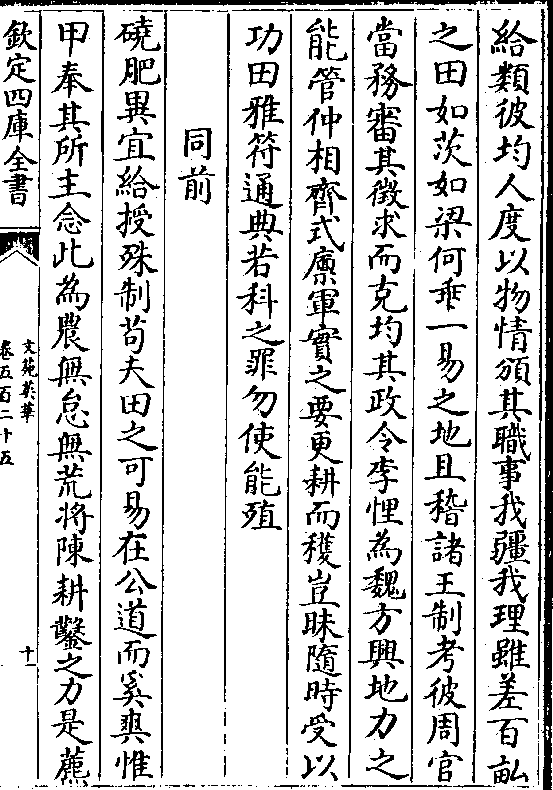 給類彼均人度以物情頒其職事我疆我理雖差百畝
之田如茨如梁何乖一易之地且稽諸王制考彼周官
當務審其徵求而克均其政令李悝為魏方興地力之
能管仲相齊式廩軍實之要更耕而穫豈昧隨時受以
功田雅符通典若科之罪勿使能殖
同前
磽肥異宜給授殊制苟夫田之可易在公道而奚爽惟
甲奉其所主念此為農無怠無荒將陳耕鑿之力是藨
欽定四庫全書
文苑英華
卷五百二十五
十一